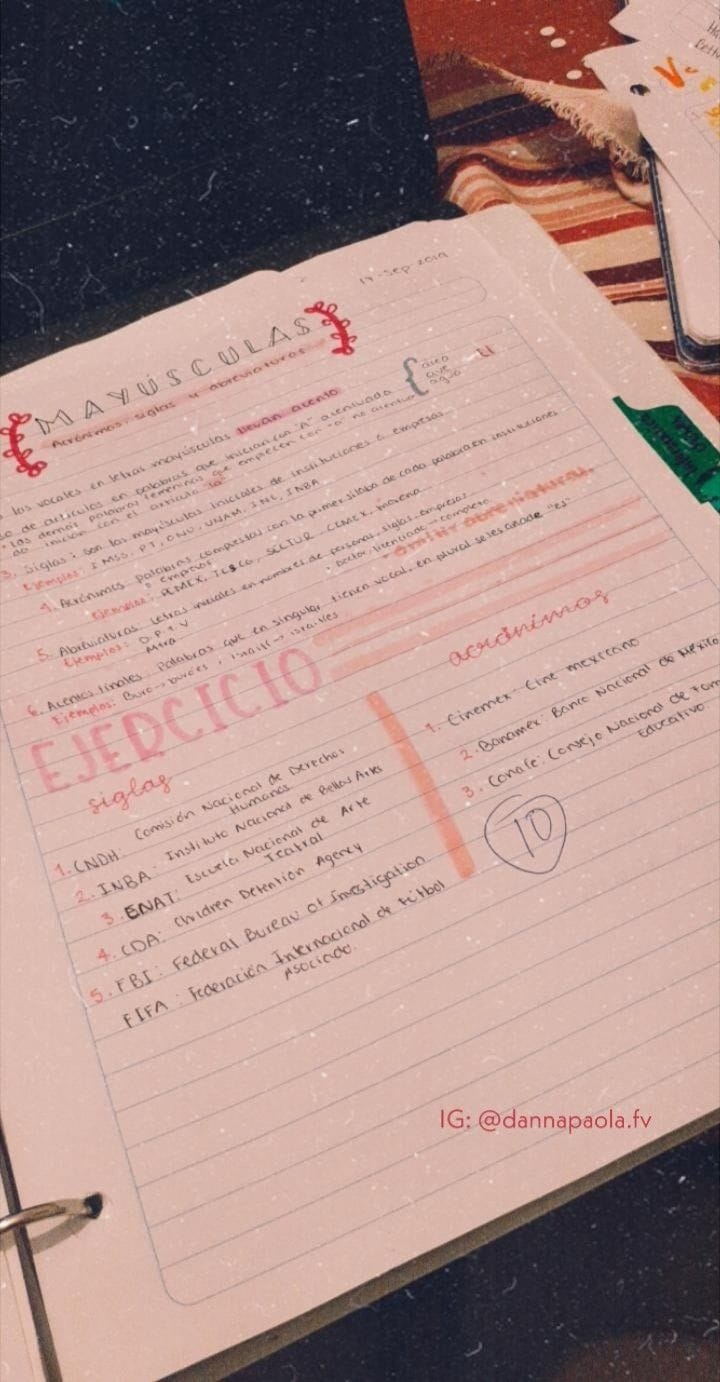 17-Sep-2019
MAYÚSCULAS
Acrónimos, siglas y abreviaturas
las vocales en letras mayúsculas llevan acento
de artículos en palabras que inician con "A" acentuada
{ área
ave
agua
El
las demás palabras femeninas que empiecen con "a" no acentua
inician con el artículo "la"
3. Siglas: son las mayúsculas iniciales de instituciones o empresas
Ejemplos: IMSS, PT, ONU, UNAM, INE, INBA
4. Acrónimos: Palabras compuestas con la primer sílaba de cada palabra en instituciones
o empresas
Ejemplos: PEMEX, TELSCO, SECTUR, CEMEX, morena
5. Abreviaturas: Letras iniciales en nombres de personas, siglas, empresas
Doctor, licenciado → completo
omitir abreviaturas
Ejemplos: D.P.F.V
Mtra.
6. Acentos finales: Palabras que en singular tienen vocal, en plural se les añade "es"
Ejemplos: Buró → buroes, israelí → israelíes
EJERCICIO
siglas
1. CNDH: Comisión Nacional de Derechos
Humanos
2. INBA: Instituto Nacional de Bellas Artes
3. ENAT: Escuela Nacional de Arte
Teatral
4. CDA: Children Detention Agency
5. FBI: Federal Bureau of Investigation
FIFA: Federación Internacional de Fútbol
Asociado.
acrónimos
1. Cinemex: Cine mexicano
2. Banamex: Banco Nacional de México
3. Conafe: Consejo Nacional de Fom
Educativo.
10
IG: @dannapaola.fv